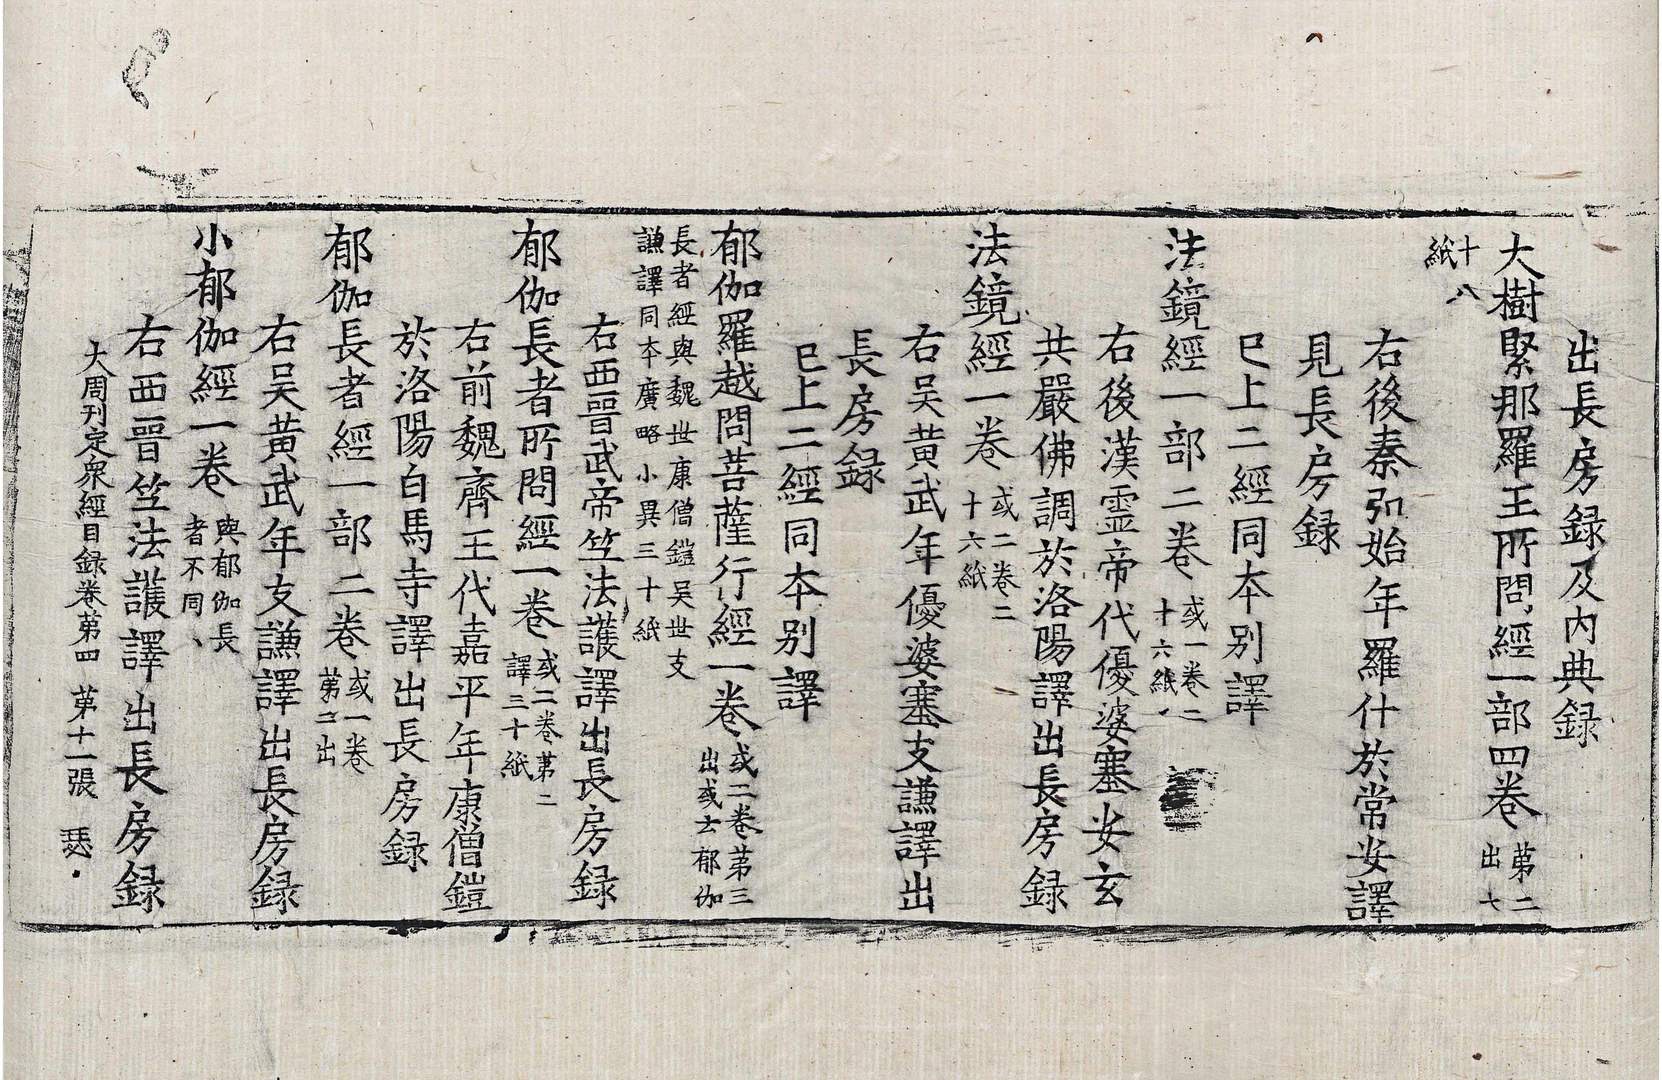 出長房録及内典録
大樹緊那羅王所問經一部四卷 第二出七
十八紙
右後秦弘始年羅什於常安譯
見長房録
已上二經同本別譯
法鏡經一部二卷 或一卷二十六紙
右後漢霊帝代優婆塞安玄
共嚴佛調於洛陽譯出長房録
法鏡經一卷 或二卷二十六紙
右吴黄武年優婆塞支謙譯出
長房録
已上二經同本別譯
郁伽羅越問菩薩行經一卷 或二卷第三出或云郁伽
長者經與魏世康僧鎧吴世支
謙譯同本廣略小異三十紙
右西晉武帝竺法護譯出長房録
郁伽長者所問經一卷 或二卷第二譯三十紙
右前魏齊王代嘉平年康僧鎧
於洛陽白馬寺譯出長房録
郁伽長者經一部二卷 或一卷第二出
右吴黄武年支謙譯出長房録
小郁伽經一卷 與郁伽長者不同
右西晉竺法護譯出長房録
大周刊定衆經目録卷第四 第十一張 瑟